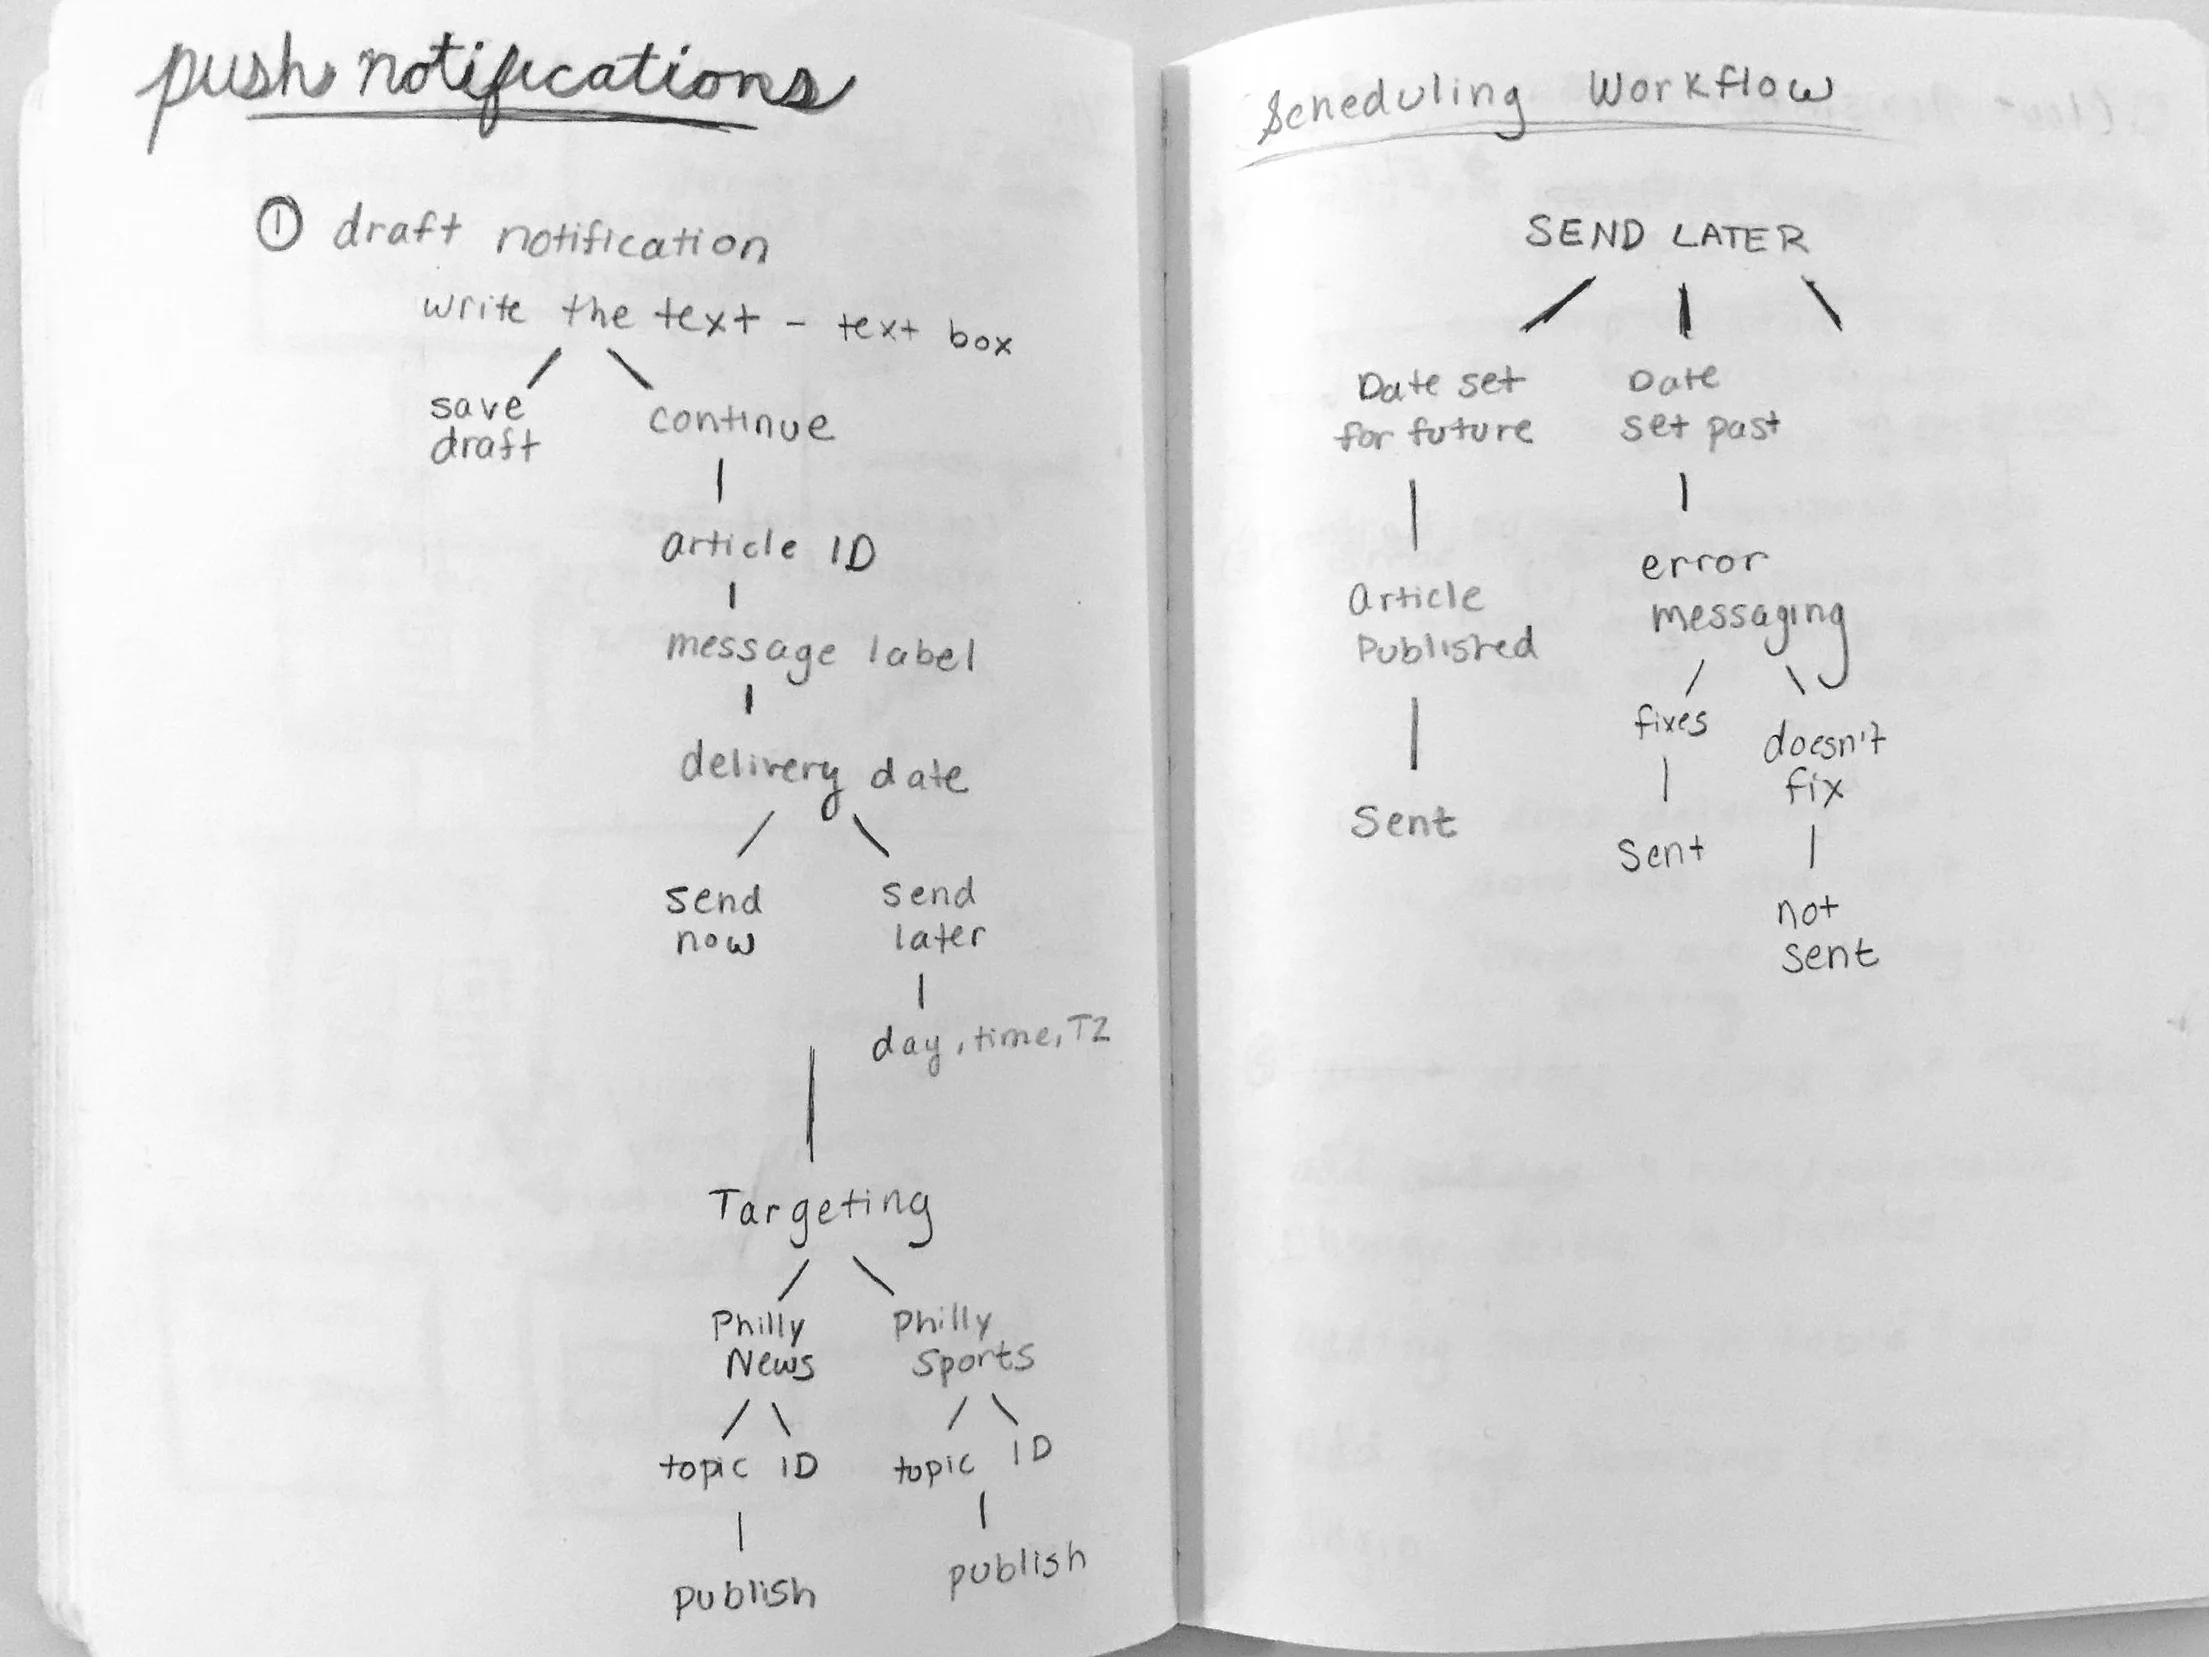 push notifications
① draft notification
write the text - text box
save
draft
continue
article ID
message label
delivery date
send
now
send
later
day, time, TZ
Targeting
Philly
News
Philly
Sports
topic ID
topic ID
publish
publish
Scheduling Workflow
SEND LATER
Date set
for future
Date
set past
article
Published
error
messaging
Sent
fixes
doesn't
fix
Sent
not
sent